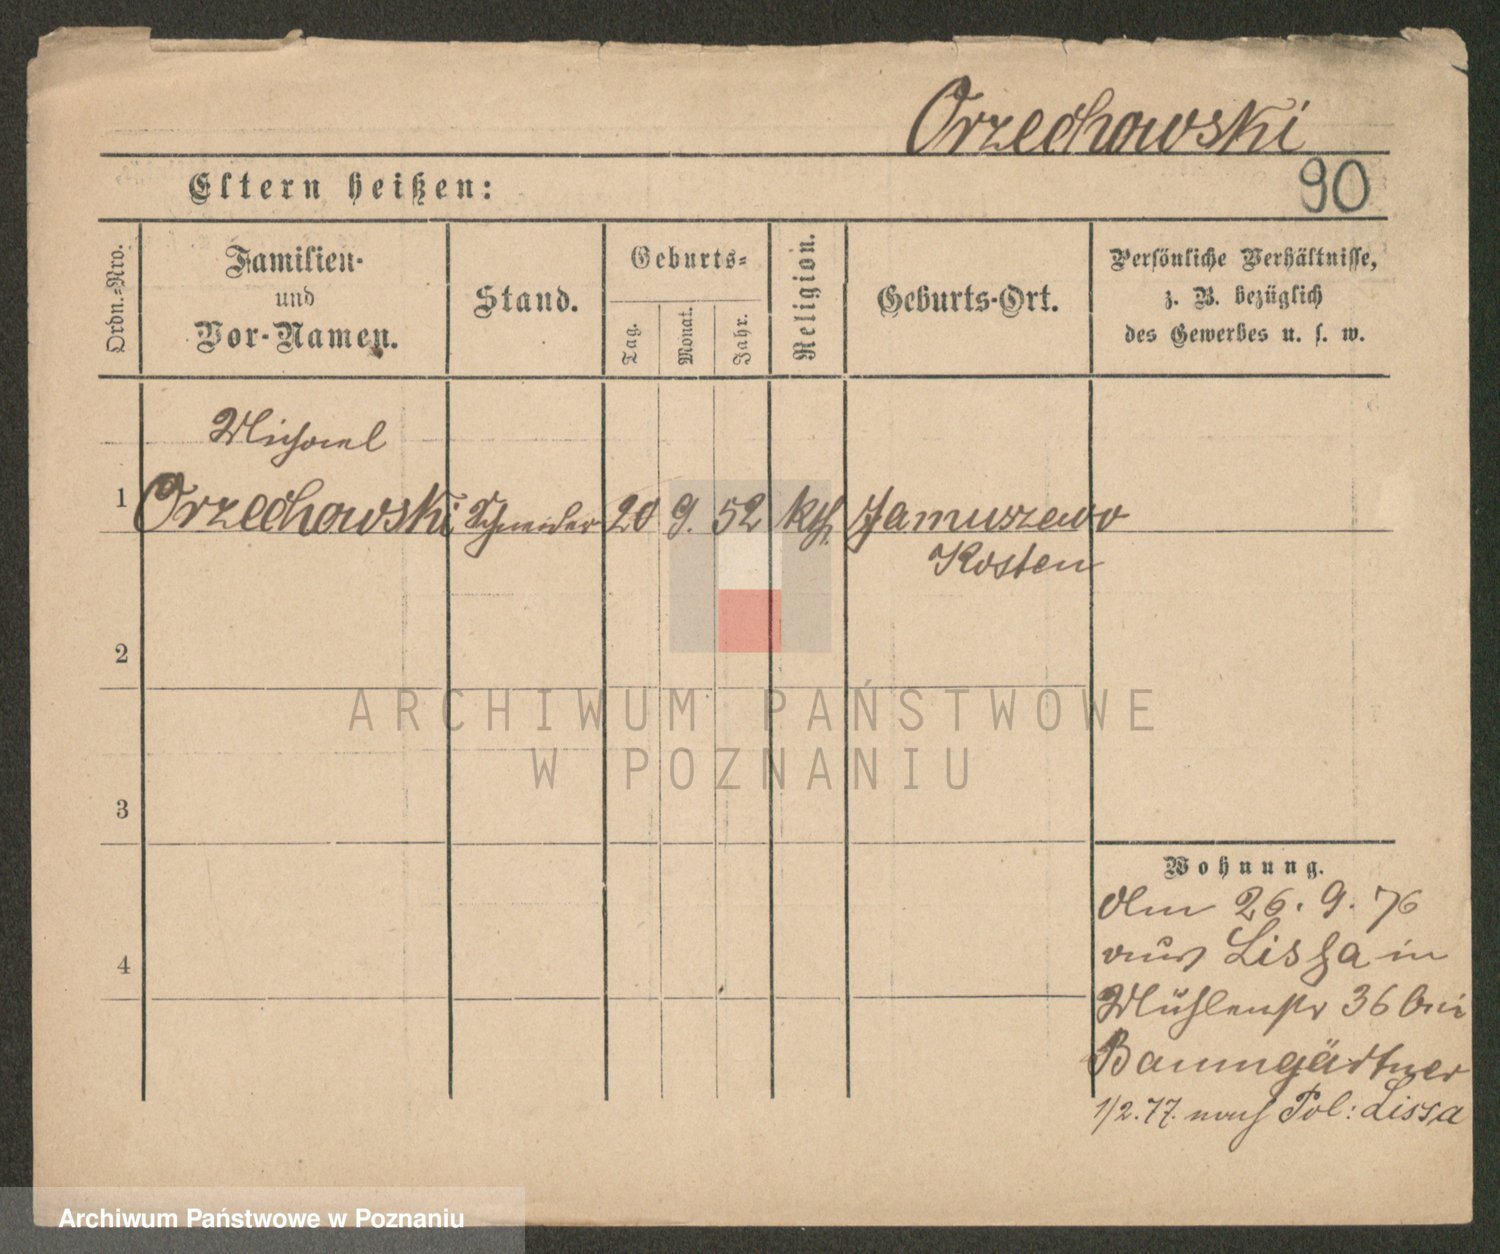 Orzechowski
90
Eltern heißen:
Ordn.-Nro.
Familien-
und
Vor-Namen.
Stand.
Geburts-
Tag.
Monat.
Jahr.
Religion.
Geburts-Ort.
Persönliche Verhältnisse,
z. B. bezüglich
des Gewerbes u. s. w.
Michael
1 Orzechowski Schneider 20 9. 52 kth Januszewo
Kosten
2
3
4
ARCHIWUM PAŃSTWOWE
W POZNANIU
Wohnung.
Am 26. 9. 76
aus Lissa in
Mühlenstr 36 bei
Baumgärtner
1/2. 77. nach Pol: Lissa
Archiwum Państwowe w Poznaniu